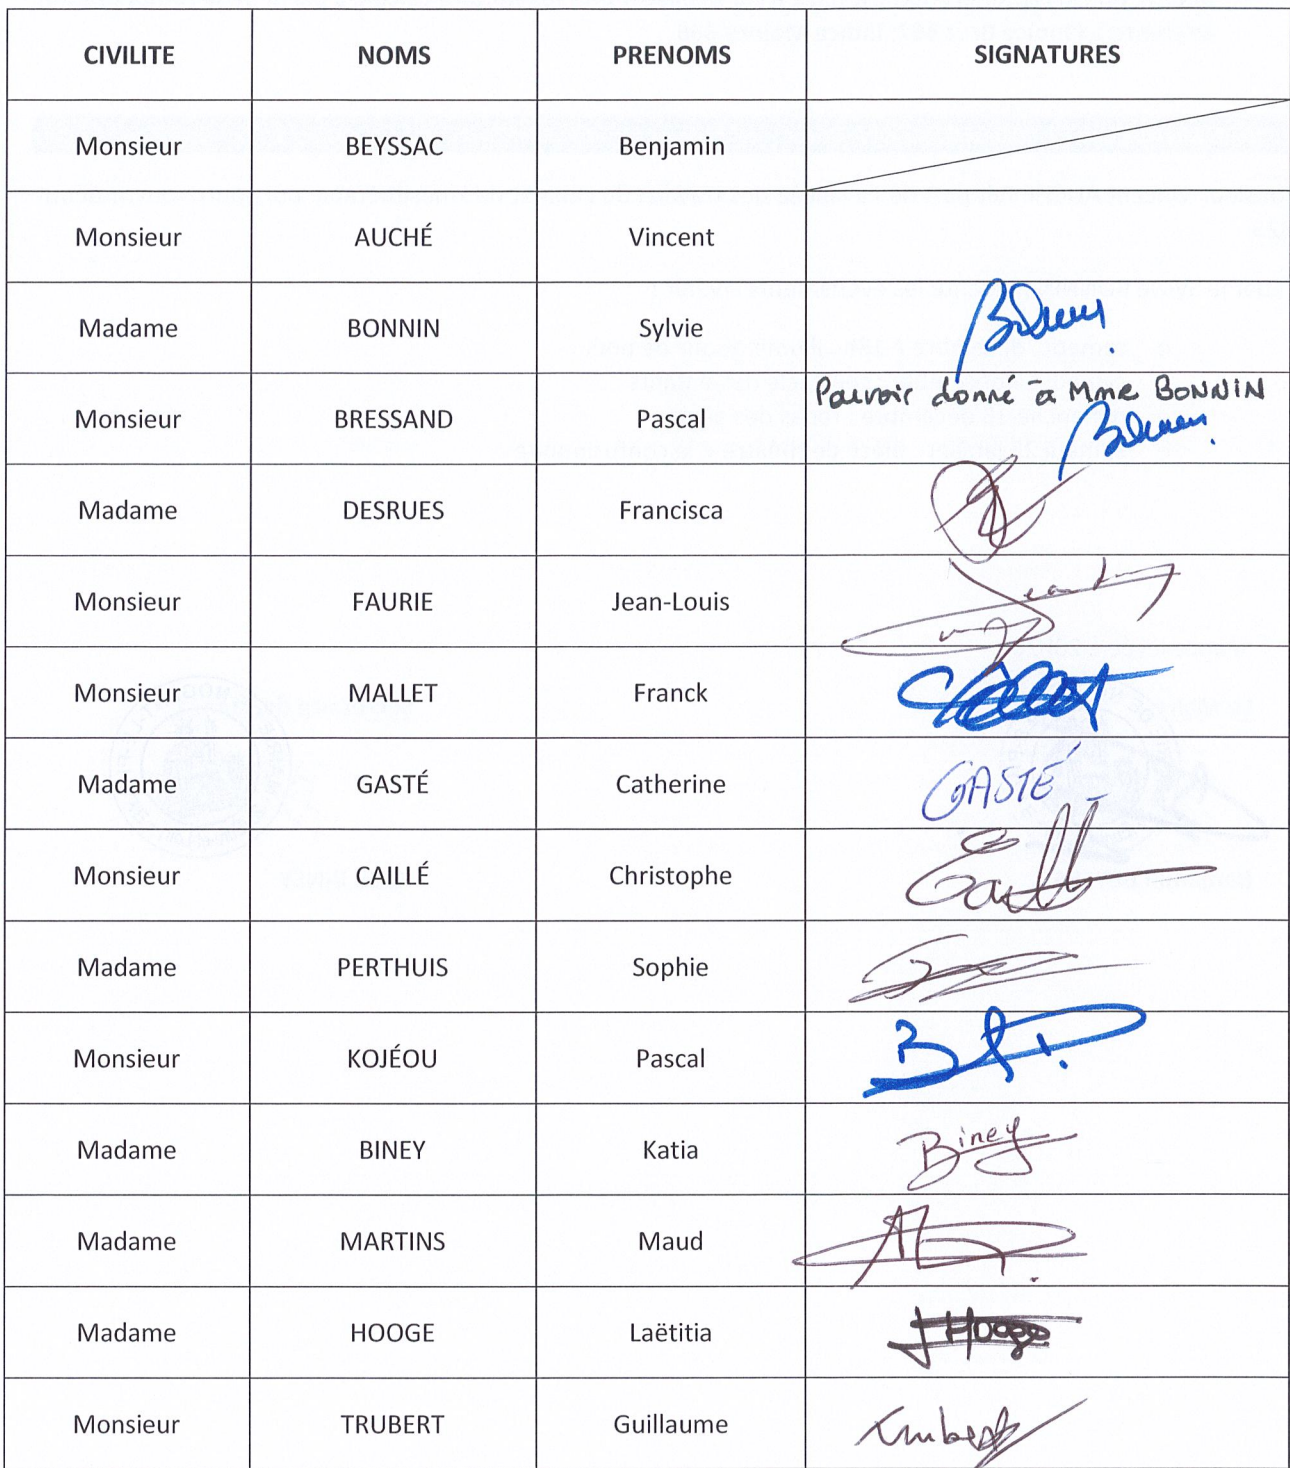 CIVILITE NOMS PRENOMS SIGNATURES
Monsieur BEYSSAC Benjamin
Monsieur AUCHÉ Vincent
Madame BONNIN Sylvie
Monsieur BRESSAND Pascal Pouvoir donné à Mme BONNIN
Madame DESRUES Francisca
Monsieur FAURIE Jean-Louis
Monsieur MALLET Franck
Madame GASTÉ Catherine GASTÉ
Monsieur CAILLÉ Christophe
Madame PERTHUIS Sophie
Monsieur KOJÉOU Pascal
Madame BINEY Katia Biney
Madame MARTINS Maud
Madame HOOGE Laëtitia Hooge
Monsieur TRUBERT Guillaume Trubert